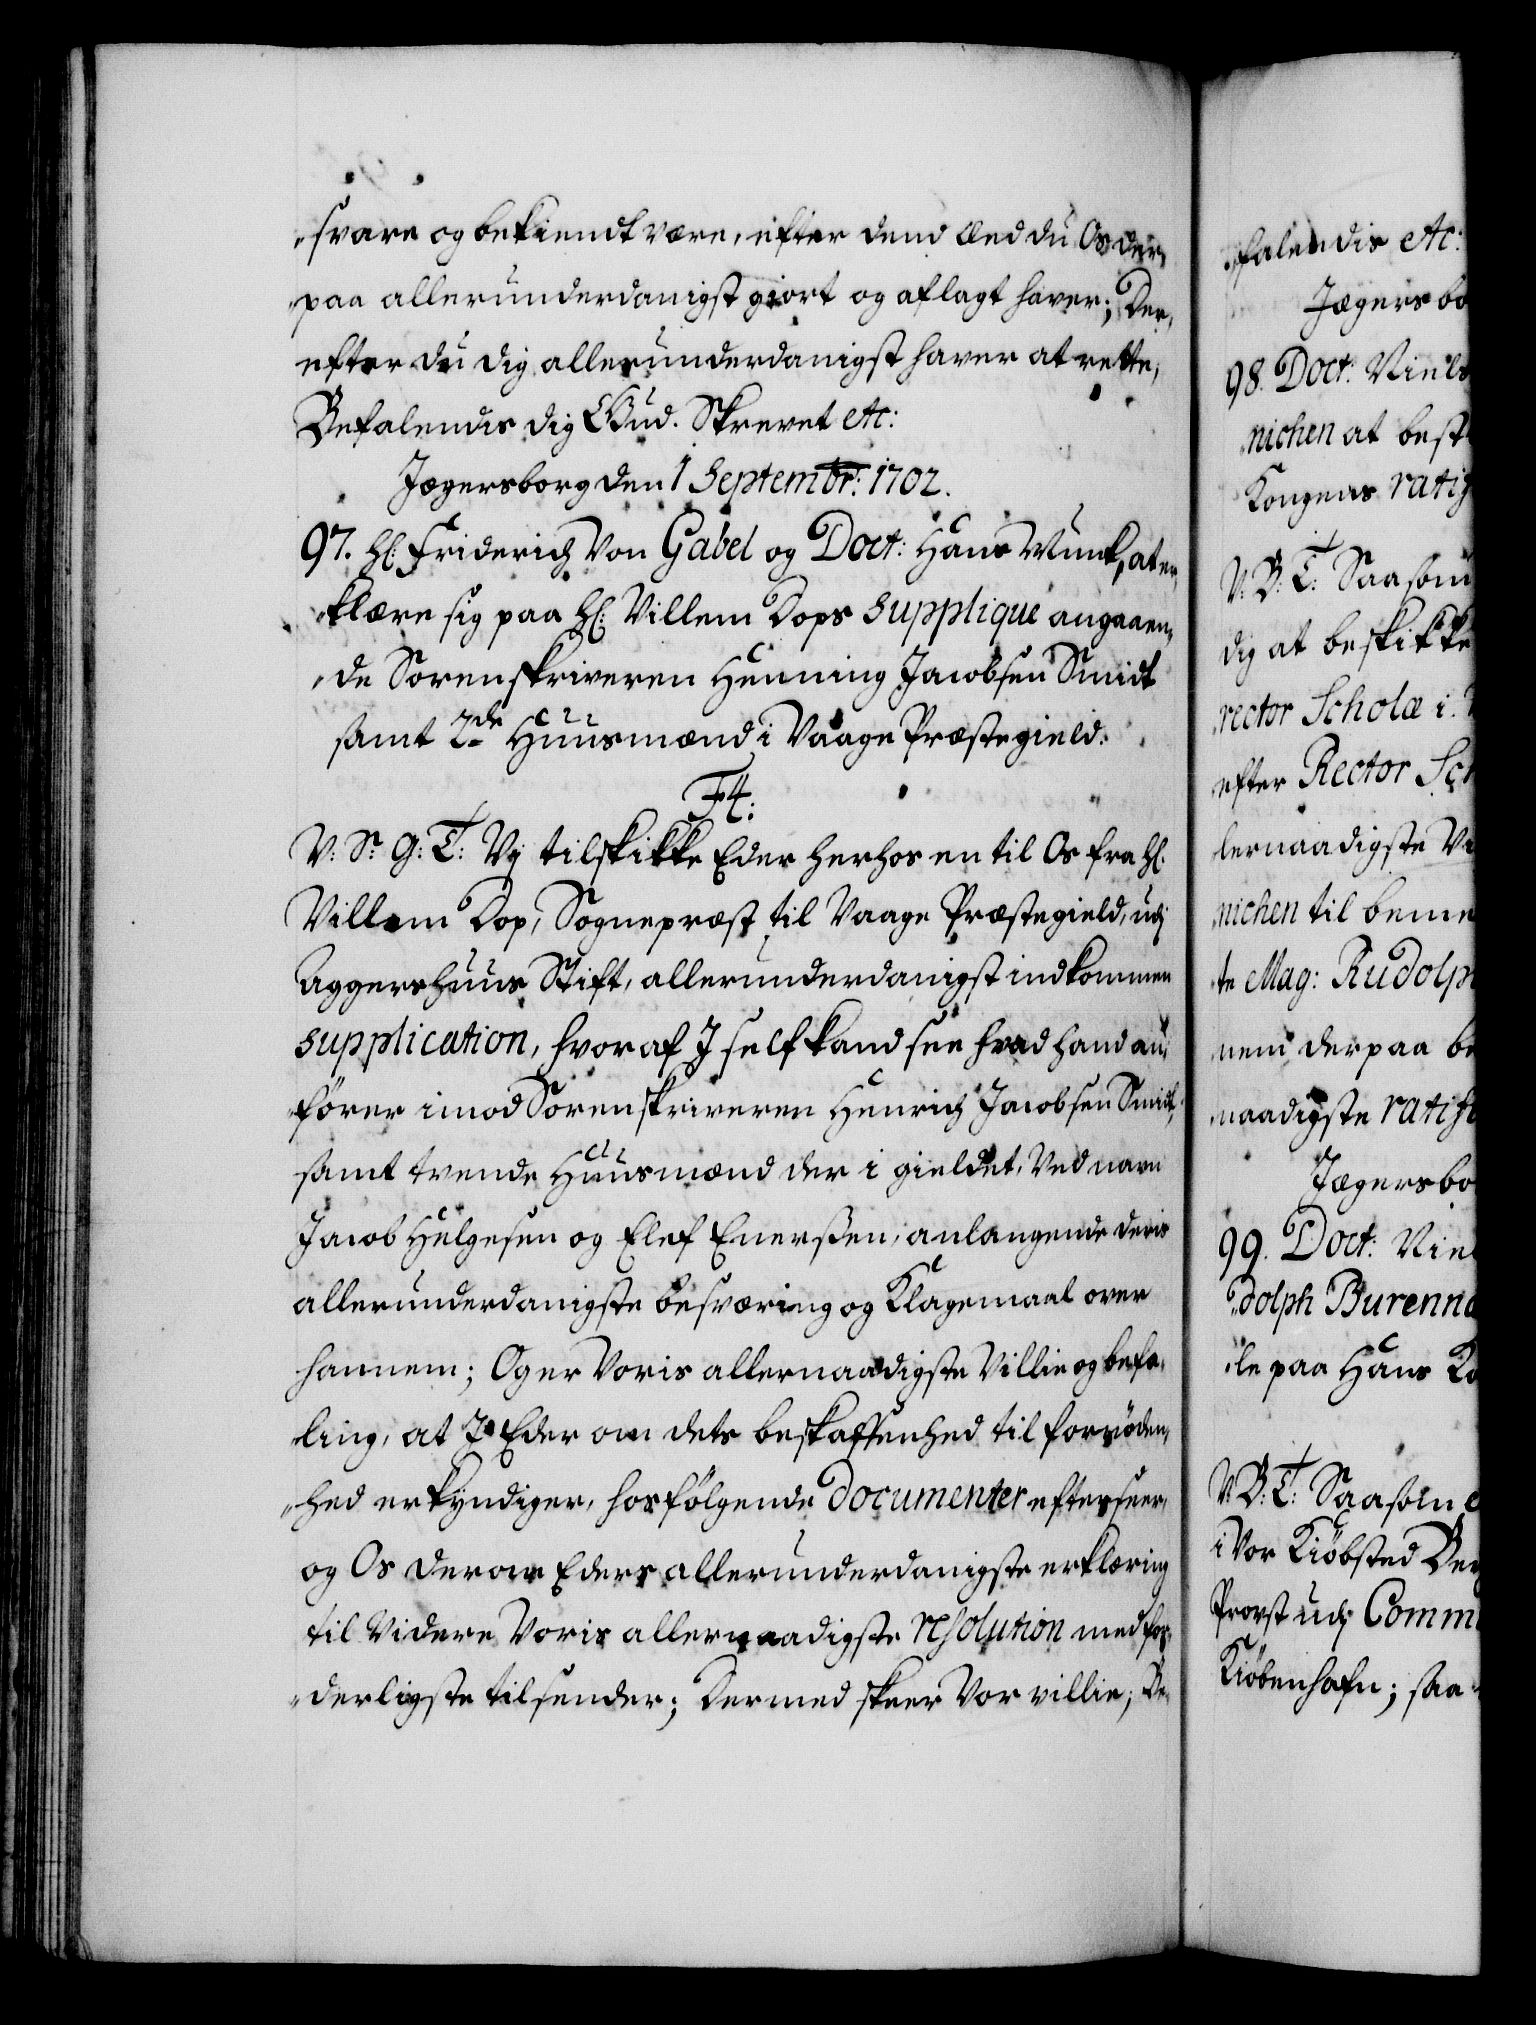 svare og bekiendt være, efter dend Æed du Os der,,
,,paa allerunderdanigst giort og aflagt haver; Der,,
efter du dig allerunderdanigst haver at rette,
Befalendis dig Gud. Skrevet etc:
Jægersborg den 1 Septembr: 1702.
97. Hl: Friderich Von Gabel og Doct: Hans Munk, at er,,
,,klære sig paa Hl: Villem Dops Supplique angaaen,,
,,de Sorenskriveren Henning Jacobsen Smidt
samt 2de Huusmænd i Vaage Præstegield.
F4.
V: Sr. G: T: Vj tilskikke Eder herhos en til Os fra Hl.
Villem Dop, Sognepræst til Vaage Præstegield, udj
Aggershuus Stift, allerunderdanigst indkommen
Supplication, hvoraf J self kand see hvad hand an,,
fører imod Sorenskriveren Henrich Jacobsen Smidt,
samt tvende Huusmænd der i gieldet, Ved navn
Jacob Helgesen og Elef Enerssen, anlangende deris
allerunderdanigste besværing og Klagemaal over
hannem; Og er Voris allernaadigste Villie og befa,,
ling, at J Eder om dets beskaffenhed til fornøden,,
,,hed erkyndiger, hosfølgende Documenter efterseer,
og Os derom Eders allerunderdanigste erklæring
til Videre Voris allernaadigste resolution med for,,
,,derligste tilsender; Dermed skeer Vor villie; Be,,
,,falendis etc:
Jægersbo
98. Doct: Niels
nichen at best
Kongens ratif
V: B: T: Saasom
dig at beskikke
rector Scholæ i
efter Rector Sch
lernaadigste Vi
nichen til beme
te Mag: Rudolph
nem derpaa be
naadigste ratifi
Jægersbo
99. Doct: Niel
dolph Burenna
le paa Hans Ko
V: B: T: Saasom
i Vor Kiøbsted Ber
Provst udj Commu
Kiøbenhafn; saa